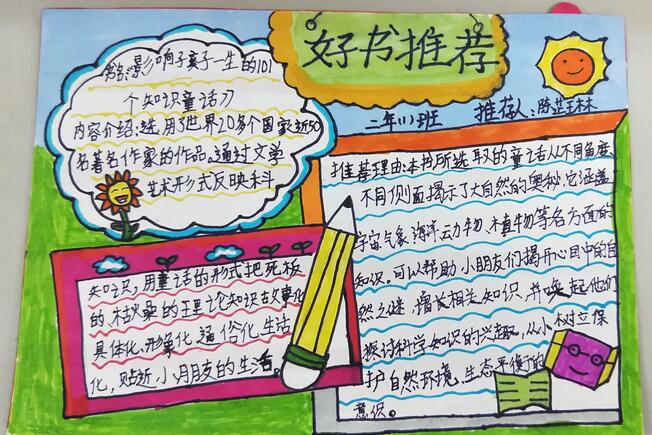 好书推荐
二年11班
推荐人:陈芷林
书名:影响孩子一生的101
个知识童话刀
内容介绍:选用了世界20多个国家近50
名著名作家的作品。通过文学
艺术形式反映科
知识,用童话的形式把死板
的枯燥的理论知识故事化
具体化、形象化、通俗化、生活
化,贴近小月朋友的生活。
推荐理由:本书所选取的童话从不同角度
不同侧面揭示了大自然的奥秘,它涵盖
宇宙气象、海洋动物、植物等各方面的
知识。可以帮助小朋友们揭开心目中的自
然之谜,增长相关知识,并唤起他们
探讨科学知识的兴趣,从小树立保
护自然环境、生态平衡的
意识。